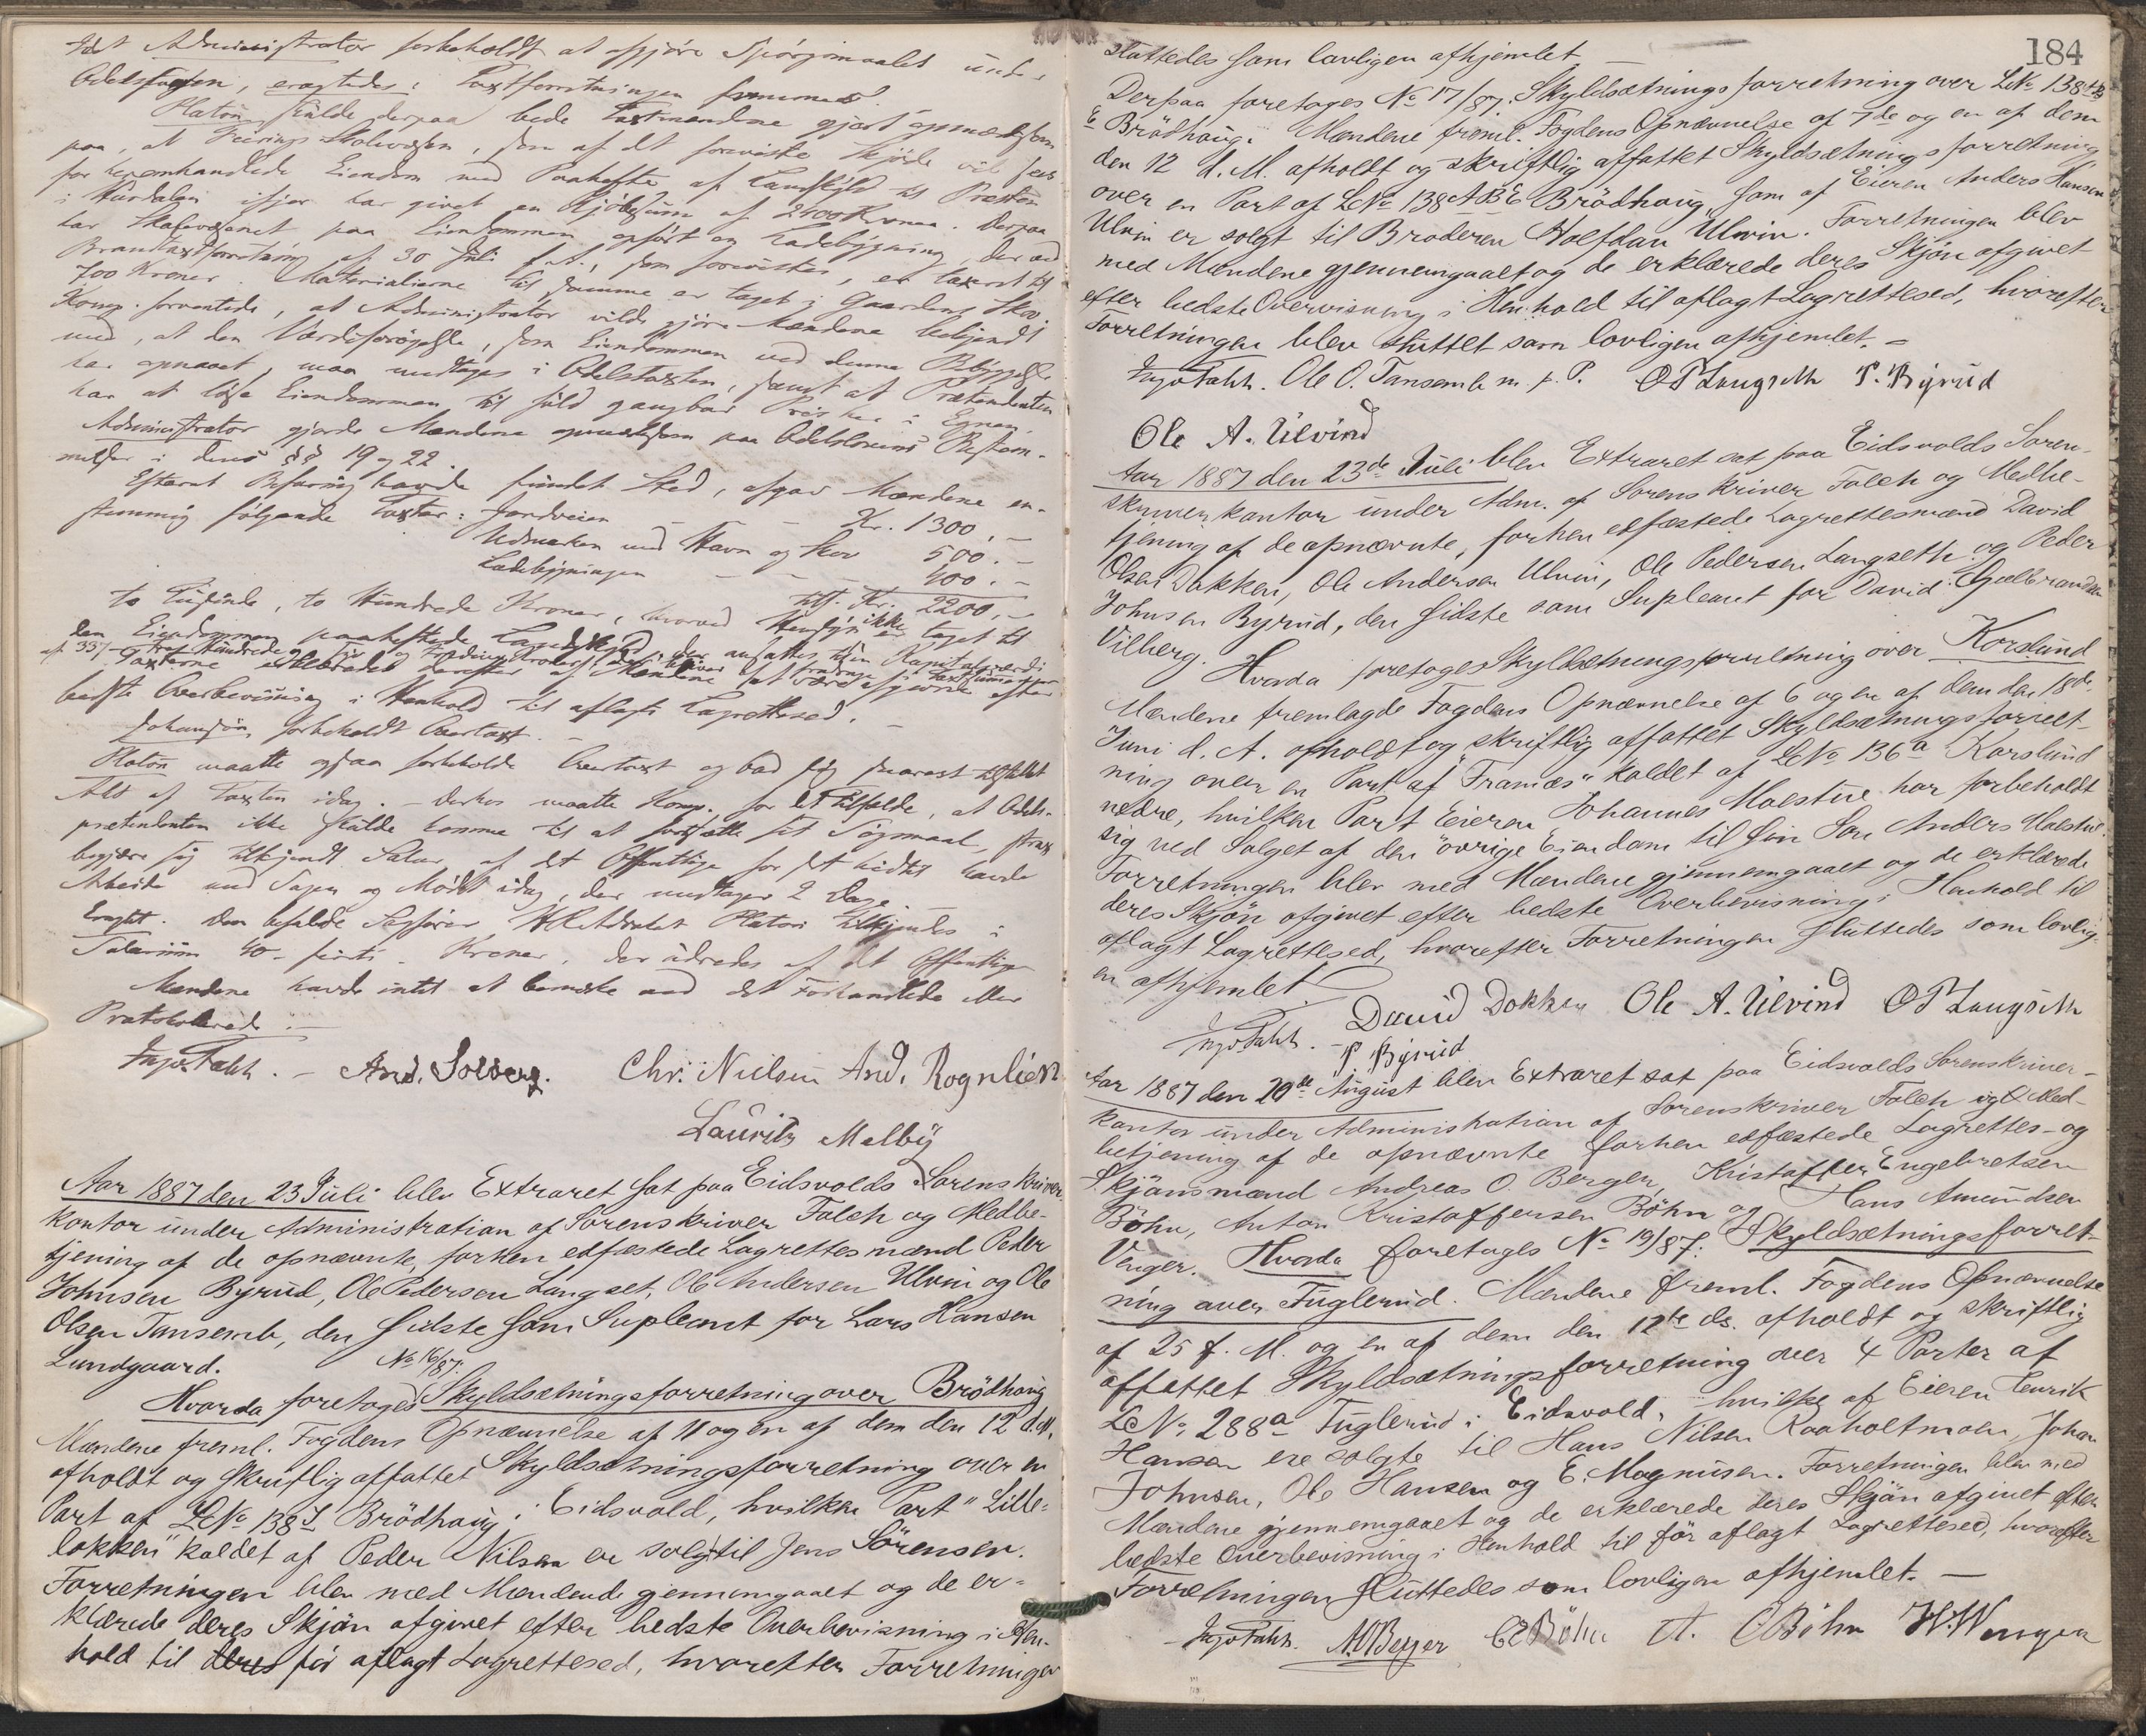 Idet Administrator forbeholdt at afgjøre Spørgsmaalet under
Odelssagen, eragtedes: Taxtforretningen fremmes.
Platou skulde derpaa bede Taxtmændene gjort opmærksom
paa, at Feirings Skolevæsen, som af det foreviste Skjøde vil sees
for heromhandlede Eiendom med Paahefte af Landskyld til Præsten
i Hurdalen isfjor har givet en Kjøbesum af 2400 Kroner. Derpaa
har Skolevæsenet paa Eiendommen opført en Ladebygning, der ved
Brandtaxtforretning af 30 Juli f. A., som forevistes, er taxeret til
700 Kroner. Materialierne til samme er taget i Gaardens Skov.
Komp. forventede, at Administrator vilde gjøre Mændene bekjendt
med, at den Værdiforøgelse, som Eiendommen ved denne Bebyggelse
har opnaaet, maa medtages i Odelstaxten, samt at Prætendenten
har at løse Eiendommen til fuld gangbar Pris her i Egnen.
Administrator gjorde Mændene opmærksom paa Odelslovens Bestem-
melser i dens §§ 19 og 22.
Efterat Befaring havde fundet Sted, afgav Mændene en-
stemmig følgende Taxter: Jordveien Kr. 1300.-
Udmarken med Havn og Skov 500.-
Ladebygningen - - - 400.-
tils. Kr. 2200,-
to Tusinde, to Hundrede Kroner, hvorved Hensyn ikke er taget til
den Eiendommen paaheftede Landskyld, der ansattes til en Kapitalværdi
Taxterne erklæredes derefter af Mændene at være afgivne efter
bedste Overbevisning i Henhold til aflagt Lagrettesed.
Johansøn forbeholdt Overtaxt.
Platou maatte ogsaa forbeholde Overtaxt og bad sig snarest tilstillet
Akt af Taxten idag. - Derhos maatte Komp. for det Tilfælde, at Odels-
prætendenten ikke skulde komme til at fortsætte sit Søgsmaal, strax
begjære sig tilkjendt Salær af det Offentlige for det hidtil havde
Arbeide med Sagen og Mødet idag, der medtager 2 Dage.
Eragtet. Den befalede Sagfører HRAdvokat Platou tilkjendes i
Salarium 40 - firti - Kroner, der udredes af det Offentlige
Mændene havde intet at bemærke ved det Forhandlede eller
Protokollerede.
Ingv. Falch. - And. Solberg. Chr. Nielsen And. Rognlien
Lauritz Melby
Aar 1887 den 23 Juli blev Extraret sat paa Eidsvolds Sorenskriver-
kontor under Administration af Sorenskriver Falch og Medbe-
tjening af de opnævnte, forhen edfæstede Lagrettesmænd Peder
Johnsen Byrud, Ole Pedersen Langset, Ole Andersen Ulvin og Ole
Olsen Tansemb, den sidste som Supleant for Lars Hansen
Lundgaard.
No 16/87:
Hvorda foretoges Skyldsætningsforretning over Brödhaug
Mændene freml. Fogdens Opnævnelse af 11 og en af dem den 12 d.M.
afholdt og skriftlig affattet Skyldsætningsforretning over en
Part af LNo 138I Brödhaug i Eidsvold, hvilken Part "Lille-
løkken" kaldet af Peder Nilsen er solgt til Jens Sörensen.
Forretningen blev med Mændende gjennemgaaet og de er-
klærede deres Skjön afgivet efter bedste Overbevisning i Hen-
hold til deres för aflagt Lagrettesed, hvorefter Forretningen
184
sluttedes som lovligen afhjemlet.
Derpaa foretages No 17/87: Skyldsætningsforretning over LNo 138 AB
E Brödhaug. Mændene freml. Fogdens Opnævnelse af 7de og en af dem
den 12 d. M. afholdt og skriftlig affattet Skyldsætningsforretning
over en Part af LNo 138 ABE Brödhaug, som af Eieren Anders Hansen
Ulvin er solgt til Broderen Halfdan Ulvin. Forretningen blev
med Mændene gjennemgaaet og de erklærede deres Skjön afgivet
efter bedste Overvisning i Henhold til aflagt Lagrettesed, hvorefter
Forretningen blev sluttet som lovligen afhjemlet. -
Ingv. Falch. Ole O. Tansemb m. p. P. O P Langseth P. Byrud
Ole A. Ulvind
Aar 1887 den 23de Juli blev Extraret sat paa Eidsvolds Soren-
skriverkontor under Adm. af Sorenskriver Falch og Medbe-
tjening af de opnævnte, forhen edfæstede Lagrettesmænd David
Olsen Dokken, Ole Andersen Ulvin, Ole Pedersen Langseth og Peder
Johnsen Byrud, den sidste som Supleant for David Gulbrandsen
Vilberg.
Hvorda foretoges Skyldsætningsforretning over Korslund
Mændene fremlagde Fogdens Opnævnelse af 6 og en af dem den 18de
Juni d. A. afholdt og skriftlig affattet Skyldsætningsforret-
ning over en Part af "Framæs" kaldet af LNo 136a Korslund
nedre, hvilken Part Eieren Johannes Molstue har forbeholdt
sig ved Salget af den övrige Eiendom til sin Søn Anders Molstue.
Forretningen blev med Mændene gjennemgaaet og de erklærede
deres Skjön afgivet efter bedste Overbevisning i Henhold til
aflagt Lagrettesed, hvorefter Forretningen sluttedes som lovlig-
en afhjemlet.
Ingv. Falch. - David Dokken Ole A. Ulvind O P Langseth
P Byrud
Aar 1887 den 20de August blev Extraret sat paa Eidsvolds Sorenskriver-
kontor under Administration af Sorenskriver Falch og Med-
betjening af de opnævnte forhen edfæstede Lagrettes- og
Skjönsmænd Andreas O. Berger, Kristoffer Engebretsen
Böhn, Anton Kristoffersen Böhn og Hans Amundsen
Venger. Hvorda foretoges No 19/87: Skyldsætningsforret-
ning over Fuglerud. Mændene freml. Fogdens Opnævnelse
af 25 f. M. og en af dem den 12te ds. afholdt og skriftlig
affattet Skyldsætningsforretning over 4 Parter af
LNo 288a Fuglerud i Eidsvold, hvilke af Eieren Henrik
Hansen ere solgte til Hans Nilsen Raaholtmoen, Johan
Johnsen, Ole Hansen og E. Magnusen. Forretningen blev med
Mændene gjennemgaaet og de erklærede deres Skjön afgivet efter
bedste Overbevisning i Henhold til för aflagt Lagrettesed, hvorefter
Forretningen sluttedes som lovligen afhjemlet. -
Ingv. Falch. A O Berger C E Böhn A. C Böhn H. Wenger